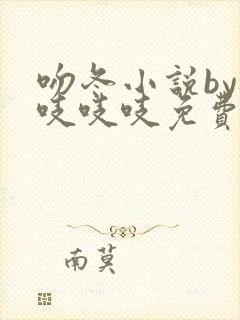 吻冬小説by
吱吱吱免費
南莫